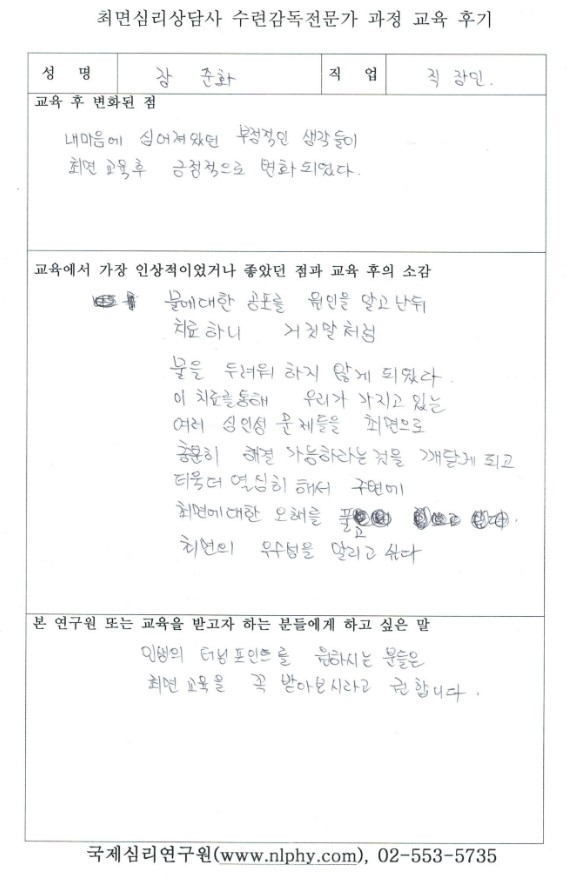 최면심리상담사 수련감독전문가 과정 교육 후기
성 명 장 준화 직 업 직장인.
교육 후 변화된 점
내마음에 심어져있던 부정적인 생각들이
최면 교육후 긍정적으로 변화 되었다.
교육에서 가장 인상적이었거나 좋았던 점과 교육 후의 소감
물에대한 공포를 원인을 알고난뒤
치료하니 거짓말처럼
물을 두려워 하지 않게 되었다.
이 치료를통해 우리가 가지고 있는
여러 심인성 문제들을 최면으로
충분히 해결 가능하라는것을 깨닫게 되고
더욱더 열심히 해서 주변에
최면에대한 오해를 풀고
최면의 우수성을 알리고 싶다
본 연구원 또는 교육을 받고자 하는 분들에게 하고 싶은 말
인생의 터닝포인트를 원하시는 분들은
최면 교육을 꼭 받아보시라고 권합니다.
국제심리연구원(www.nlphy.com), 02-553-5735